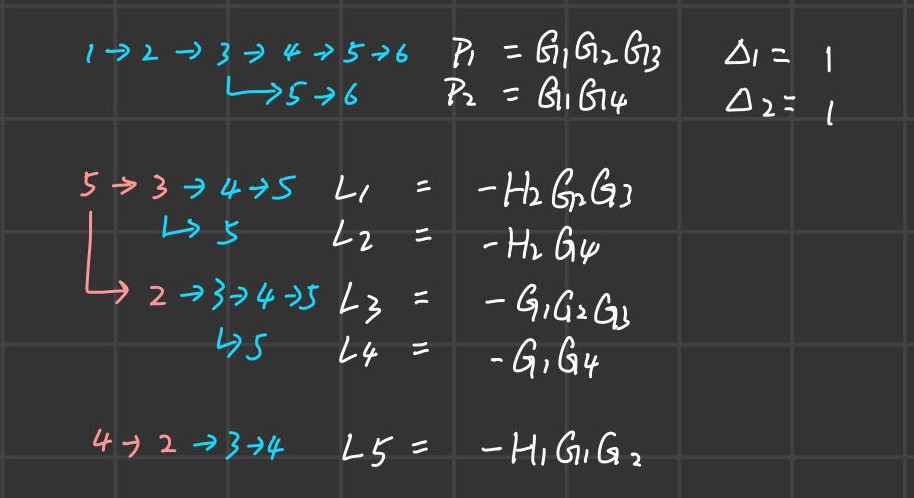 1 → 2 → 3 → 4 → 5 → 6 P1 = G1G2G3 Δ1 = 1
↳ 5 → 6 P2 = G1G4 Δ2 = 1
5 → 3 → 4 → 5 L1 = -H2G2G3
↳ 5 L2 = -H2G4
↳ 2 → 3 → 4 → 5 L3 = -G1G2G3
↳ 5 L4 = -G1G4
4 → 2 → 3 → 4 L5 = -H1G1G2